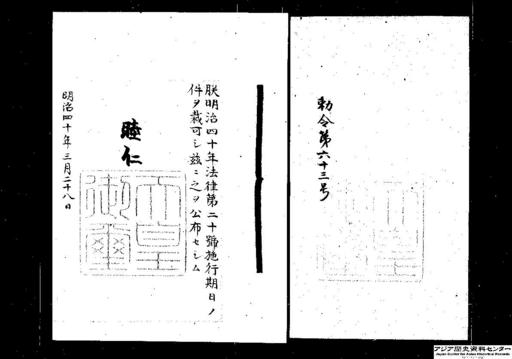 勅令第六十三号
朕明治四十年法律第二十號施行期日ノ
件ヲ裁可シ玆ニ之ヲ公布セシム
睦仁
天皇
御璽
明治四十年三月二十八日
アジア歴史資料センター
Japan Center for Asian Historical Records